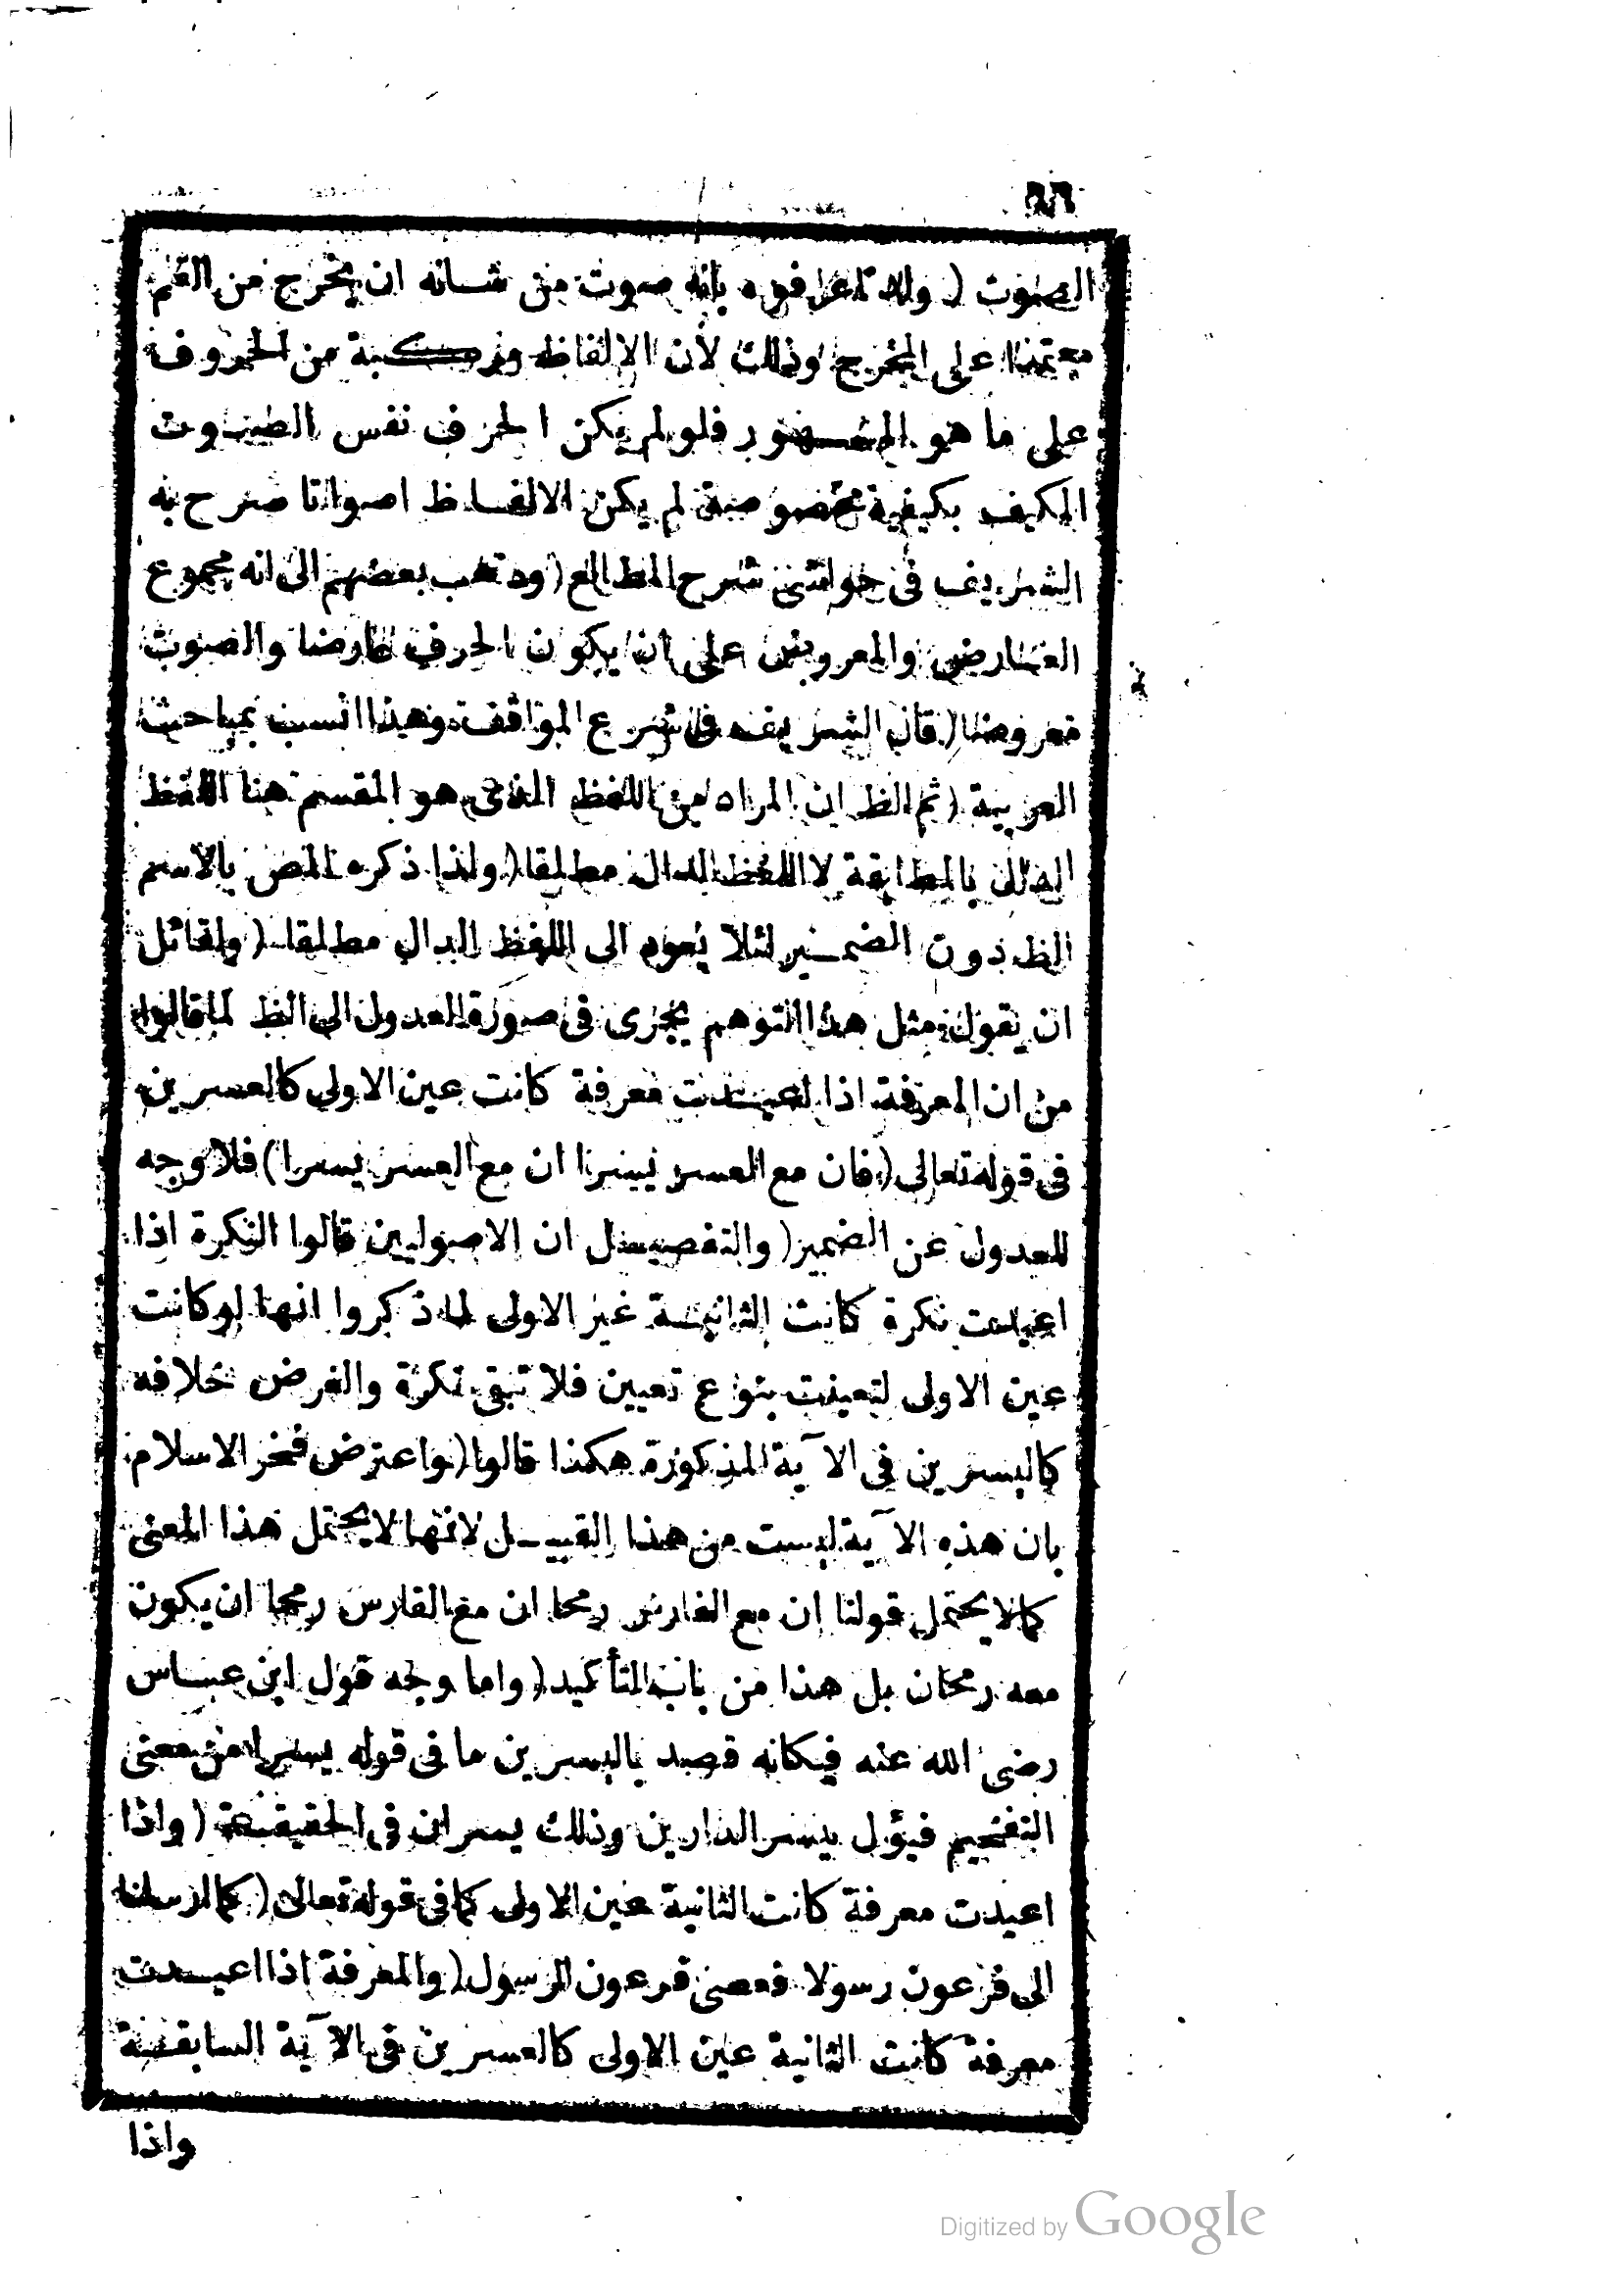 الصوت ( ولذا عرفوه بانه صوت من شانه ان يخرج من الفم
معتمدا على المخرج وذلك لأن الالفاظ مركبة من الحروف
على ما هو المشهور فلولم يكن الحرف نفس الصوت
المكيف بكيفية مخصوصة لم يكن الالفاظ اصواتا صرح به
الشريف فى حواشى شرح المطالع ( وذهب بعضهم الى انه مجموع
العارض والمعروض على ان يكون الحرف عارضا والصوت
معروضا ( قال الشريف فى شرح المواقف وهذا انسب بمباحث
العربية ( ثم الظ ان المراد من اللفظ الذى هو المقسم هنا اللفظ
الدال بالمطابقة لا اللفظ الدال مطلقا ( ولذا ذكره المص بالاسم
الظ دون الضمير لئلا يعود الى اللفظ الدال مطلقا ( ولقائل
ان يقول مثل هذا التوهم يجرى فى صورة العدول الى الظ لما قالوا
من ان المعرفة اذا اعيدت معرفة كانت عين الاولى كالعسرين
فى قوله تعالى ( فان مع العسر يسرا ان مع العسر يسرا ) فلا وجه
للعدول عن الضمير ( والتفصيل ان الاصوليين قالوا النكرة اذا
اعيدت نكرة كانت الثانية غير الاولى لما ذكروا انها لو كانت
عين الاولى لتعينت بنوع تعيين فلا تبقى نكرة والفرض خلافه
كاليسرين فى الآية المذكورة هكذا قالوا ( واعترض فخر الاسلام
بان هذه الآية ليست من هذا القبيل لانها لا يحتمل هذا المعنى
كما لا يحتمل قولنا ان مع الفارس رمحا ان مع الفارس رمحا ان يكون
معه رمحان بل هذا من باب التأكيد ( واما وجه قول ابن عباس
رضى الله عنه فكانه قصد باليسرين ما فى قوله يسرا من معنى
التفخيم فيؤل بيسر الدارين وذلك يسران فى الحقيقة ( واذا
اعيدت معرفة كانت الثانية عين الاولى كما فى قوله تعالى ( كما ارسلنا
الى فرعون رسولا فعصى فرعون الرسول ( والمعرفة اذا اعيدت
معرفة كانت الثانية عين الاولى كالعسرين فى الآية السابقة
واذا
Digitized by Google